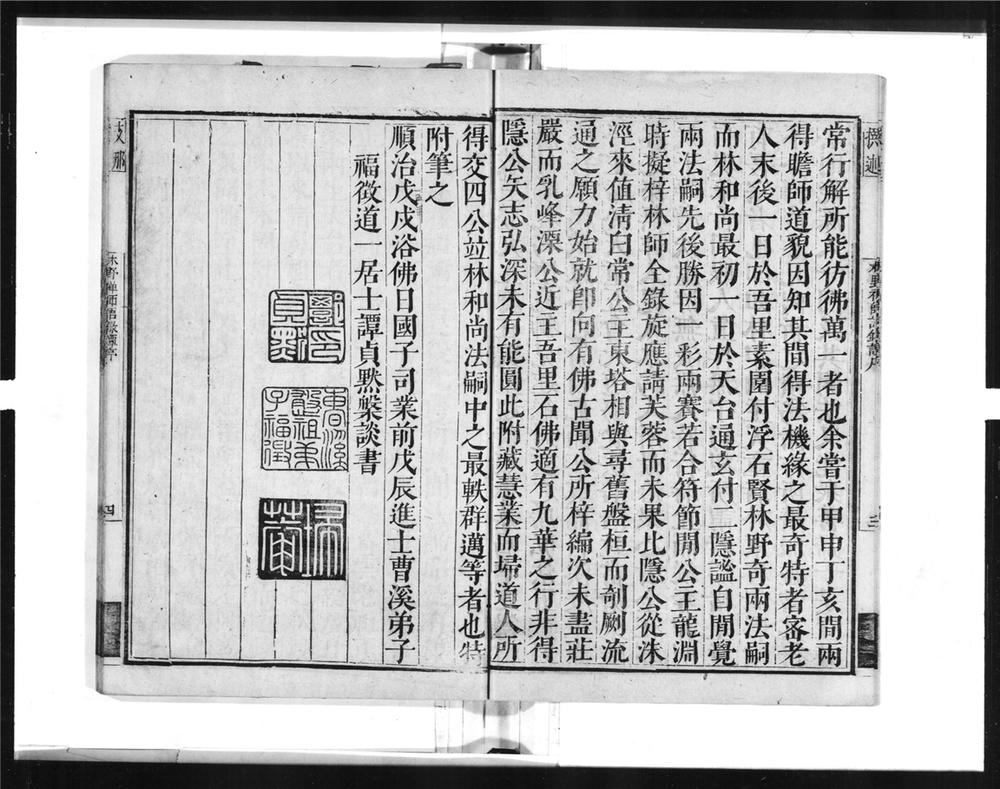 常行解所能彷彿萬一者也余嘗于甲申丁亥間兩
得瞻師道貌因知其間得法機緣之最奇特者審老
人末後一日於吾里素園付浮石賢林野奇兩法嗣
而林和尚最初一日於天台通玄付二隱謐自閒覺
兩法嗣先後勝因一彩兩賽若合符節閒公主龍淵
時擬梓林師全錄旋應請芙蓉而未果比隱公從洙
涇來值清白常公主東塔相與尋舊盤桓而剞劂流
通之願力始就卽向有佛古聞公所梓編次未盡莊
嚴而乳峰㵎公近王吾里石佛適有九華之行非得
隱公矢志弘深未有能圓此附藏慧業而埽道人所
得交四公竝林和尚法嗣中之最軼群邁等者也特
附筆之
順治戊戌浴佛日國子司業前戊辰進士曹溪弟子
福徵道一居士譚貞默槃談書
林野禪師語錄譚序
三
支那
林野禪師語錄譚序
四